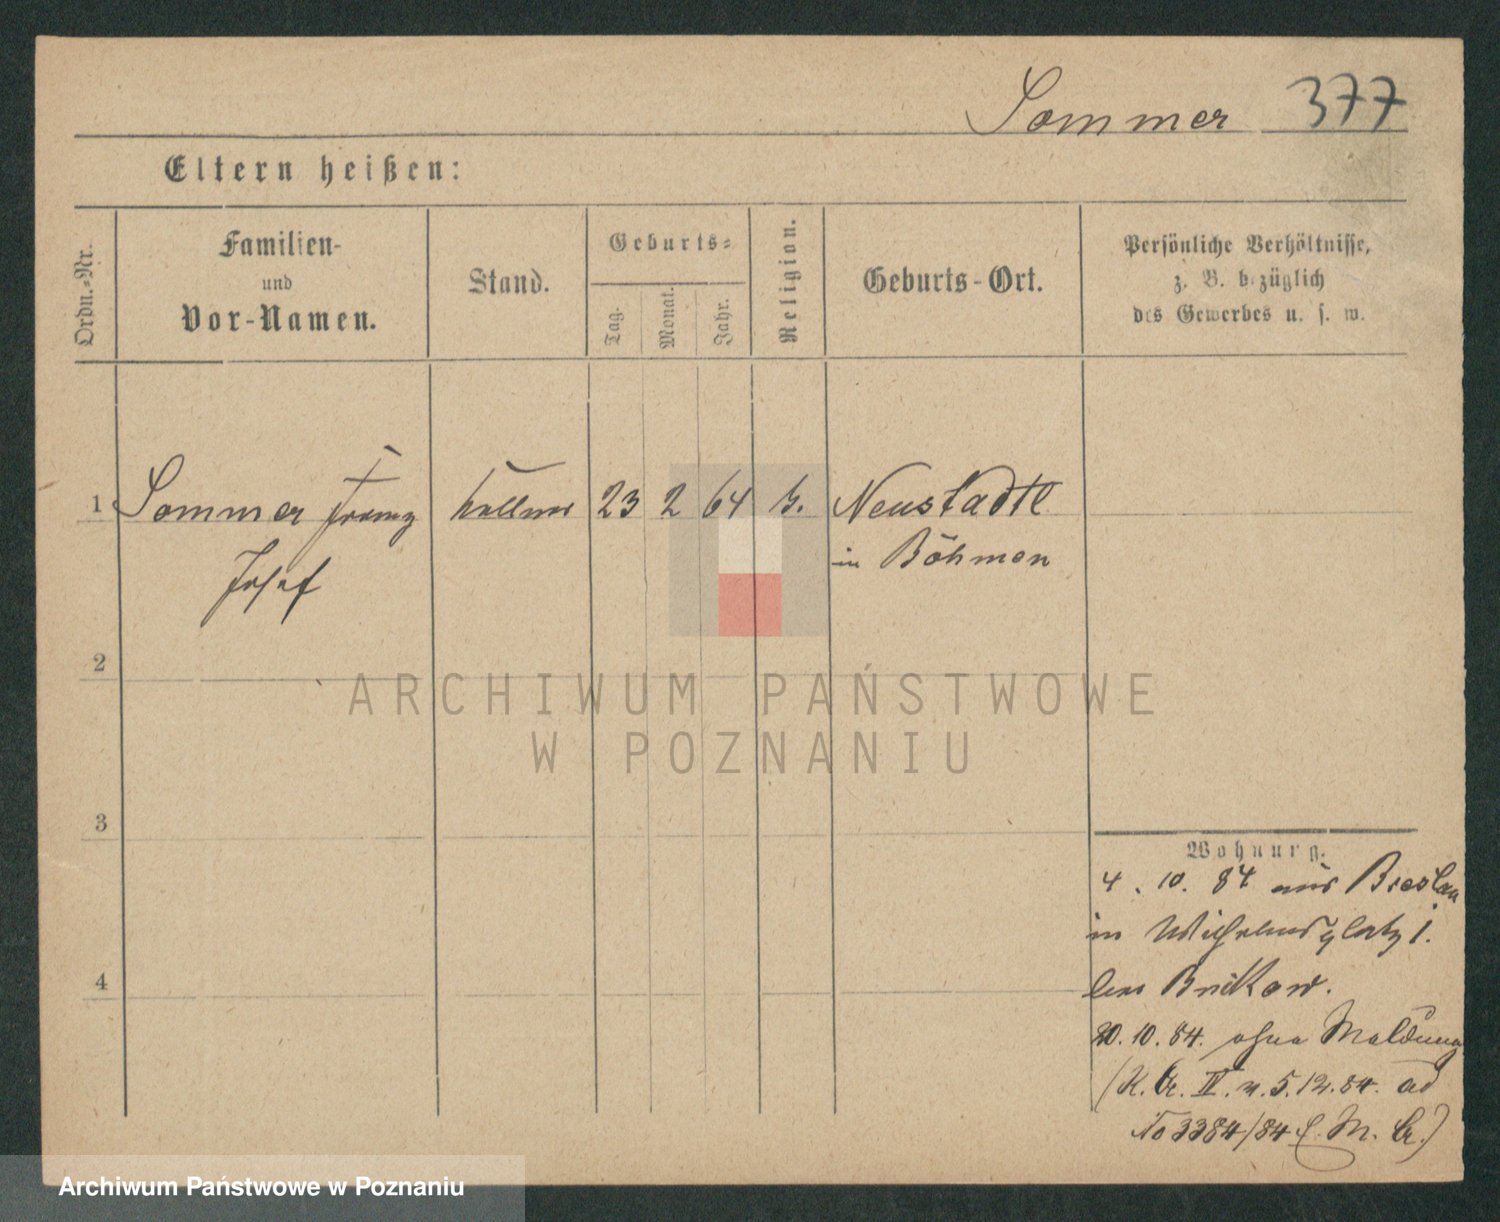 Sommer 377
Eltern heißen:
Ordn.-Nr.
Familien-
und
Vor-Namen.
Stand.
Geburts-
Tag.
Monat.
Jahr.
Religion.
Geburts-Ort.
Persönliche Verhöltnisse,
z. B. bezüglich
des Gewerbes u. s. w.
1 Sommer Franz Kellner 23 2 64 Neustadtl
Josef in Böhmen
2
3
4
ARCHIWUM PAŃSTWOWE
W POZNANIU
Wohnung.
4. 10. 84 aus Breslau
in Wilhelmsplatz 1.
bei
20. 10. 84. ohne Meldung
(K. Br. IV. v. 5. 12. 84. ad
No 3384/84 E. M. Br.)
Archiwum Państwowe w Poznaniu